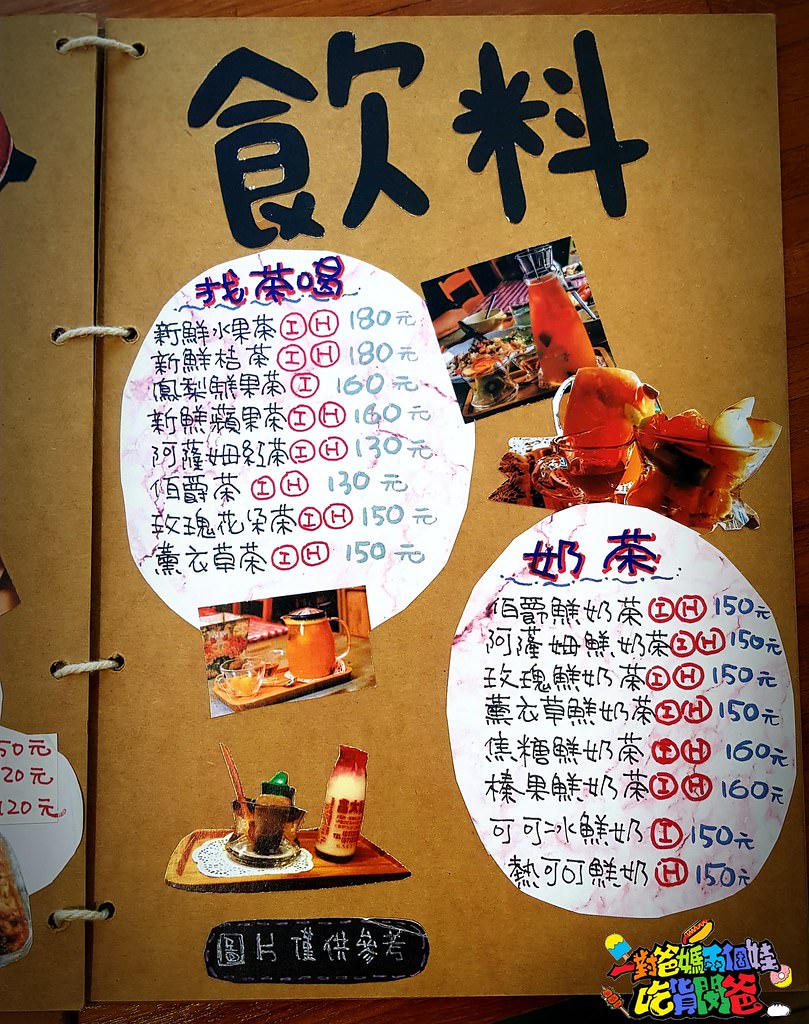 飲料
找茶喝
新鮮水果茶ⒾⒽ 180元
新鮮桔茶ⒾⒽ 180元
鳳梨鮮果茶Ⓘ 160元
新鮮蘋果茶ⒾⒽ 160元
阿薩姆紅茶ⒾⒽ 130元
伯爵茶ⒾⒽ 130元
玫瑰花朵茶ⒾⒽ 150元
薰衣草茶ⒾⒽ 150元
奶茶
伯爵鮮奶茶ⒾⒽ150元
阿薩姆鮮奶茶ⒾⒽ150元
玫瑰鮮奶茶ⒾⒽ150元
薰衣草鮮奶茶ⒾⒽ150元
焦糖鮮奶茶ⒾⒽ160元
榛果鮮奶茶ⒾⒽ160元
可可冰鮮奶Ⓘ150元
熱可可鮮奶Ⓗ150元
50元
20元
120元
圖片僅供參考
一對爸媽兩個娃
吃貨閔爸